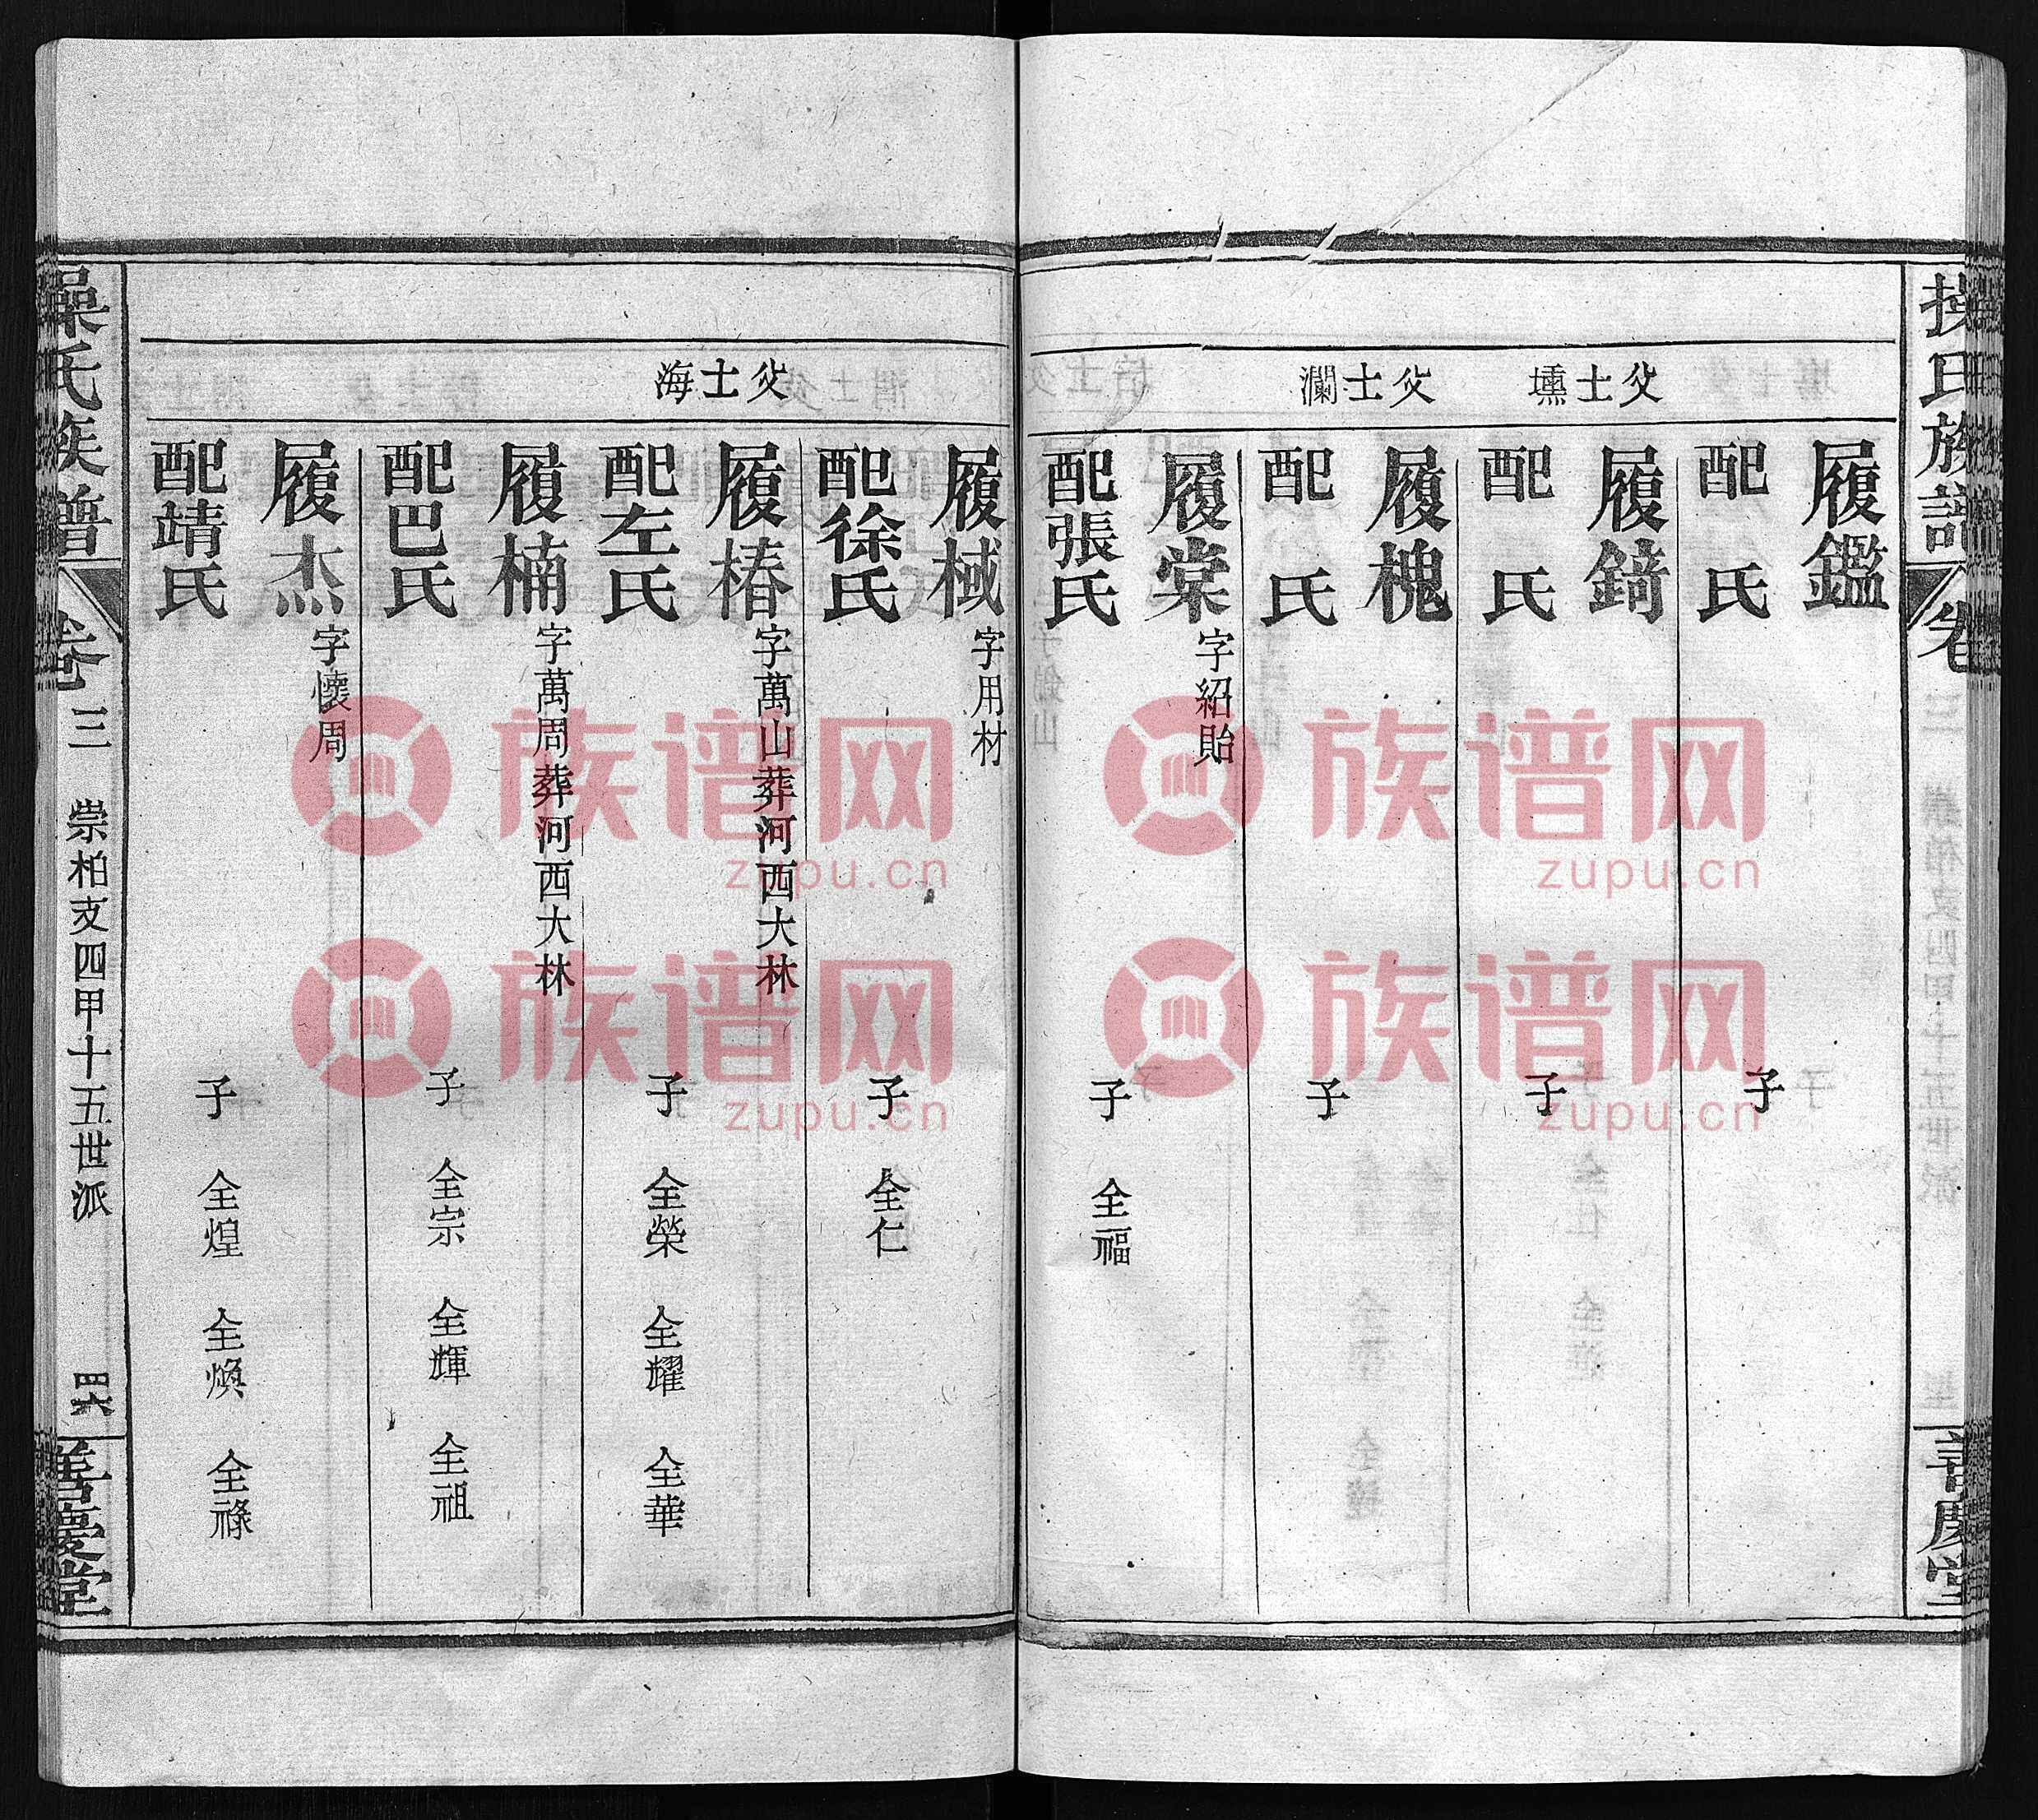 操氏族譜
卷
善慶堂
履鑑
配 氏
子
父士壎
履錡
配 氏
子
父士瀾
履槐
配 氏
子
履棠 字紹貽
配張氏
子 全福
履棫 字用材
配徐氏
子 全仁
父士海
履椿 字萬山葬河西大林
配左氏
子 全榮 全耀 全華
履楠 字萬周葬河西大林
配巴氏
子 全宗 全輝 全祖
履杰 字懷周
配靖氏
子 全煌 全煥 全祿
操氏族譜
卷三 崇柏支四甲十五世派 四六
善慶堂
族谱网
zupu.cn
族谱网
zupu.cn
族谱网
zupu.cn
族谱网
zupu.cn